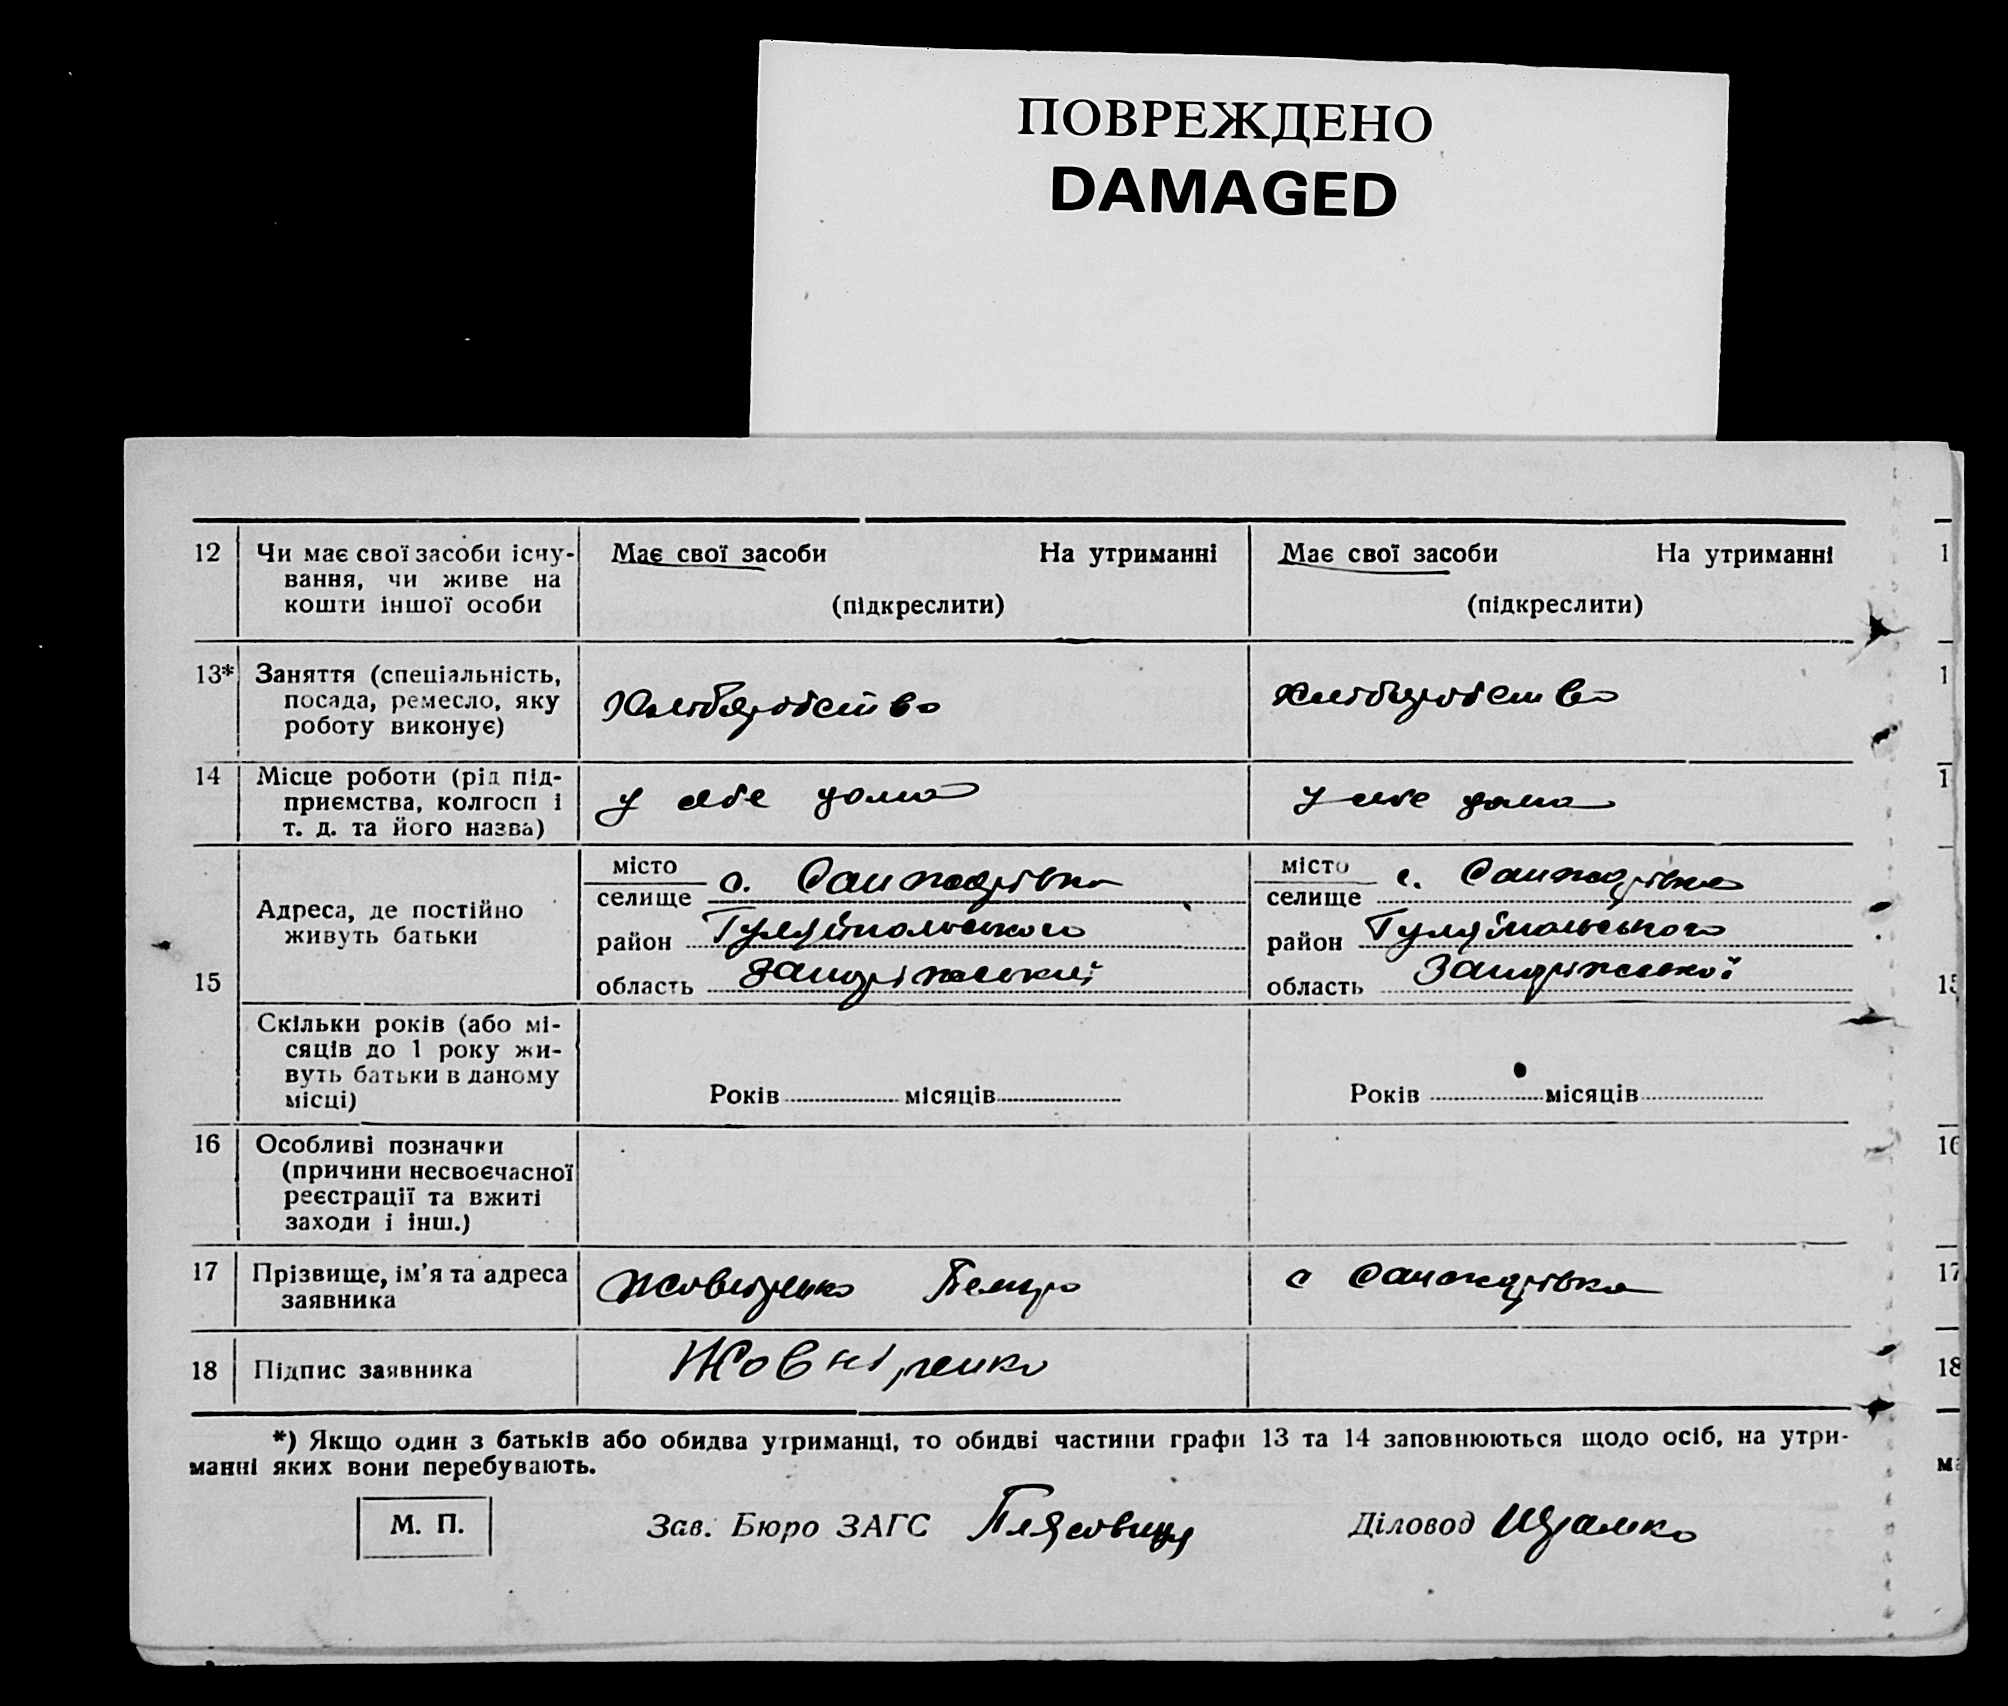 ПОВРЕЖДЕНО
DAMAGED
12 Чи має свої засоби існу-
вання, чи живе на
кошти іншої особи
Має свої засоби На утриманні
(підкреслити)
Має свої засоби На утриманні
(підкреслити)
13* Заняття (спеціальність,
посада, ремесло, яку
роботу виконує)
Хліборобство
Хліборобство
14 Місце роботи (рід під-
приємства, колгосп і
т. д. та його назва)
у себе дома
у себе дома
15 Адреса, де постійно
живуть батьки
місто
селище с. Санжарівка
район Гуляйпольського
область
місто
селище с. Санжарівка
район Гуляйпольського
область
Скільки років (або мі-
сяців до 1 року жи-
вуть батьки в даному
місці)
Років місяців
Років місяців
16 Особливі позначки
(причини несвоєчасної
реєстрації та вжиті
заходи і інш.)
17 Прізвище, ім'я та адреса
заявника
Жовніренко Петро
с Санжарівка
18 Підпис заявника
Жовніренко
*) Якщо один з батьків або обидва утриманці, то обидві частини графи 13 та 14 заповнюються щодо осіб, на утри-
манні яких вони перебувають.
М. П.
Зав. Бюро ЗАГС
Діловод
1
1
1
15
16
17
18
ма